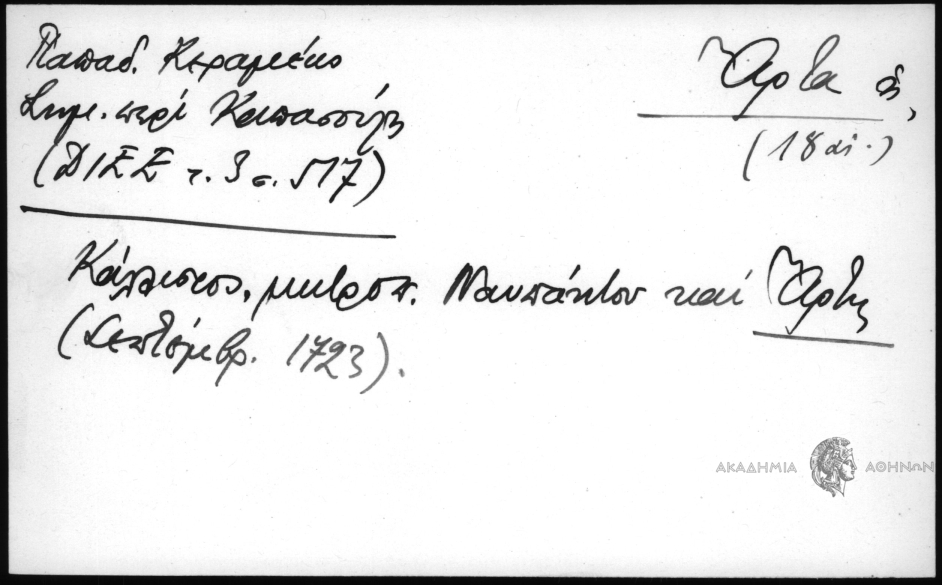 Παπαδ. Κεραμέως
Σημ. περί Καπασούλη
(ΔΙΕΕ τ. 3 σ. 517)
Άρτα ἡ,
(18 αἰ.)
Κάλλιστος, μητροπ. Ναυπάκτου καί Άρτης
(Σεπτέμβρ. 1723).
ΑΚΑΔΗΜΙΑ ΑΘΗΝΩΝ